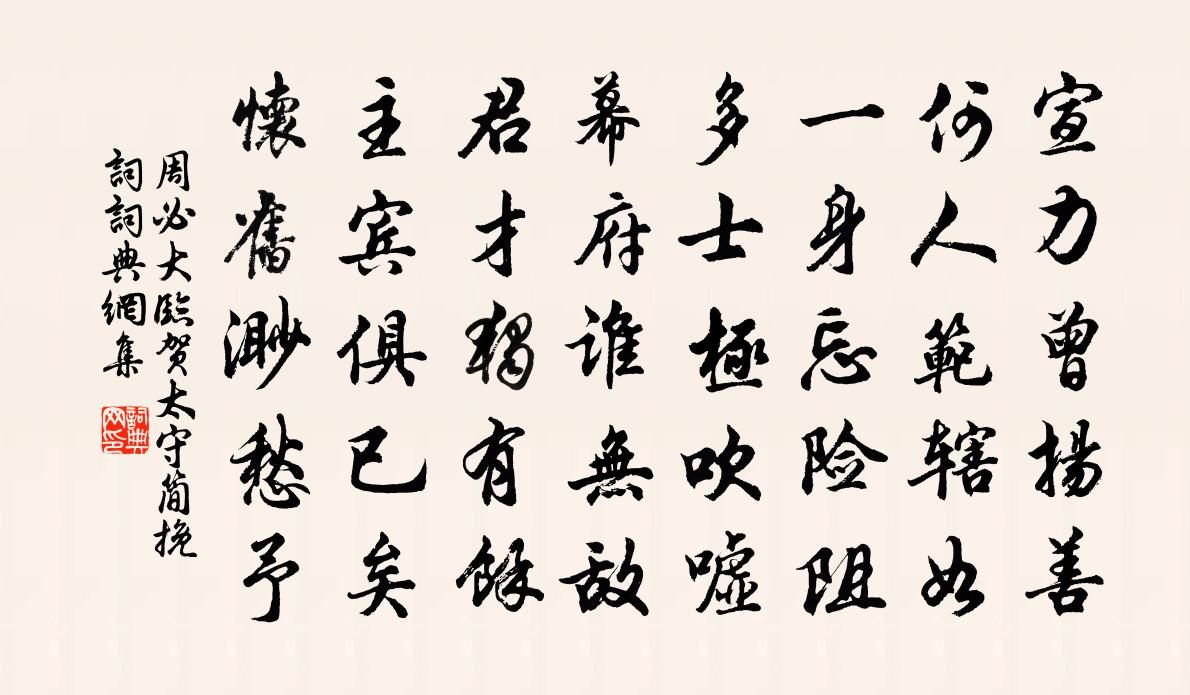 宣力曾揚善
何人範辖如
一身忘险阻
多士極吹嘘
幕府谁無敌
君才獨有餘
主宾俱已矣
懷舊渺愁予
周必大臨贺太守简挽
詞詞典網集
詞典网印